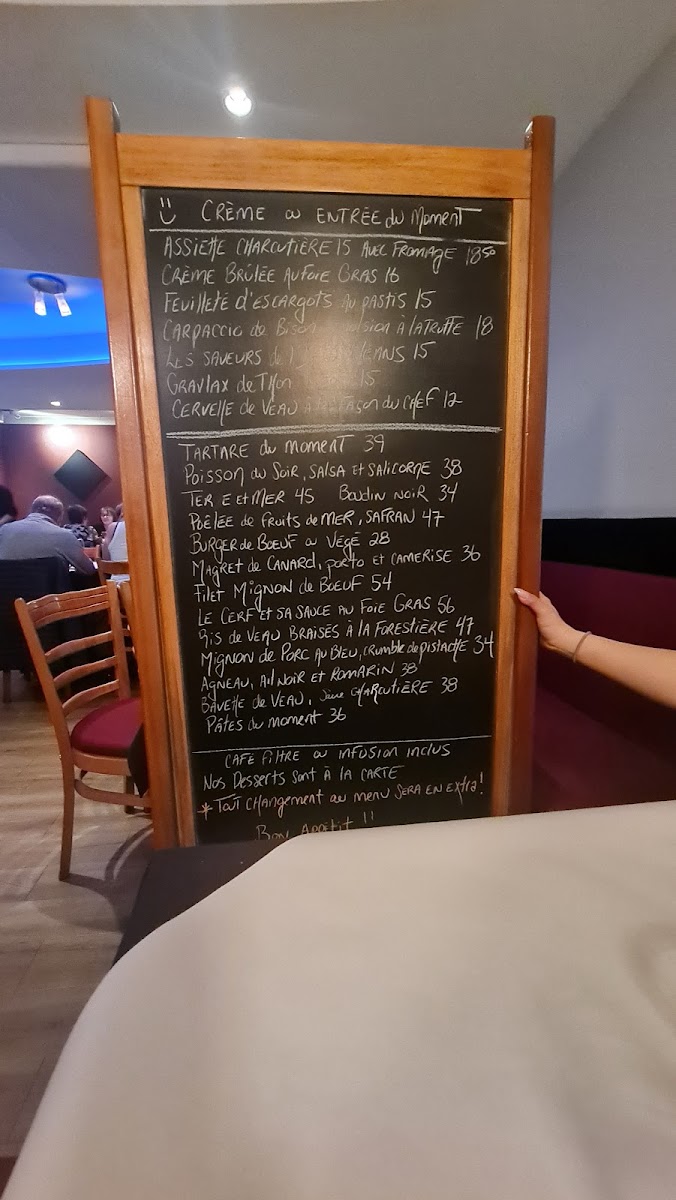 CRÈME ou ENTRÉE du MOMENT
ASSIETTE CHARCUTIÈRE 15 AVEC FROMAGE 18.50
CRÈME BRÛLÉE AU FOIE GRAS 16
FEUILLETÉ d'ESCARGOTS AU PASTIS 15
CARPACCIO de BISON À LA TRUFFE 18
LES SAVEURS 15
GRAVLAX de THON 15
CERVELLE de VEAU FAÇON du CHEF 12
TARTARE du MOMENT 39
POISSON DU SOIR, SALSA ET SALICORNE 38
TER E ET MER 45 BOUDIN NOIR 34
POÊLÉE de FRUITS de MER, SAFRAN 47
BURGER de BOEUF ou VÉGÉ 28
MAGRET de CANARD, PORTO ET CAMERISE 36
FILET MIGNON de BOEUF 54
LE CERF ET SA SAUCE AU FOIE GRAS 56
RIS de VEAU BRAISÉS À LA FORESTIÈRE 47
MIGNON de PORC AU BLEU, CRUMBLE de PISTACHE 34
AGNEAU, AIL NOIR ET ROMARIN 38
BAVETTE de VEAU, CHARCUTIÈRE 38
PÂTES du MOMENT 36
CAFE FILTRE ou INFUSION INCLUS
NOS DESSERTS SONT À LA CARTE
* TOUT CHANGEMENT au MENU SERA EN EXTRA!
BON APPÉTIT !!